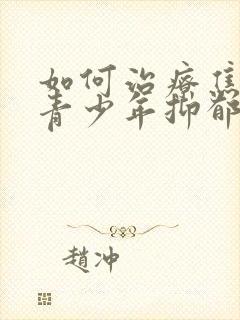 如何治疗焦
青少年抑郁
赵冲